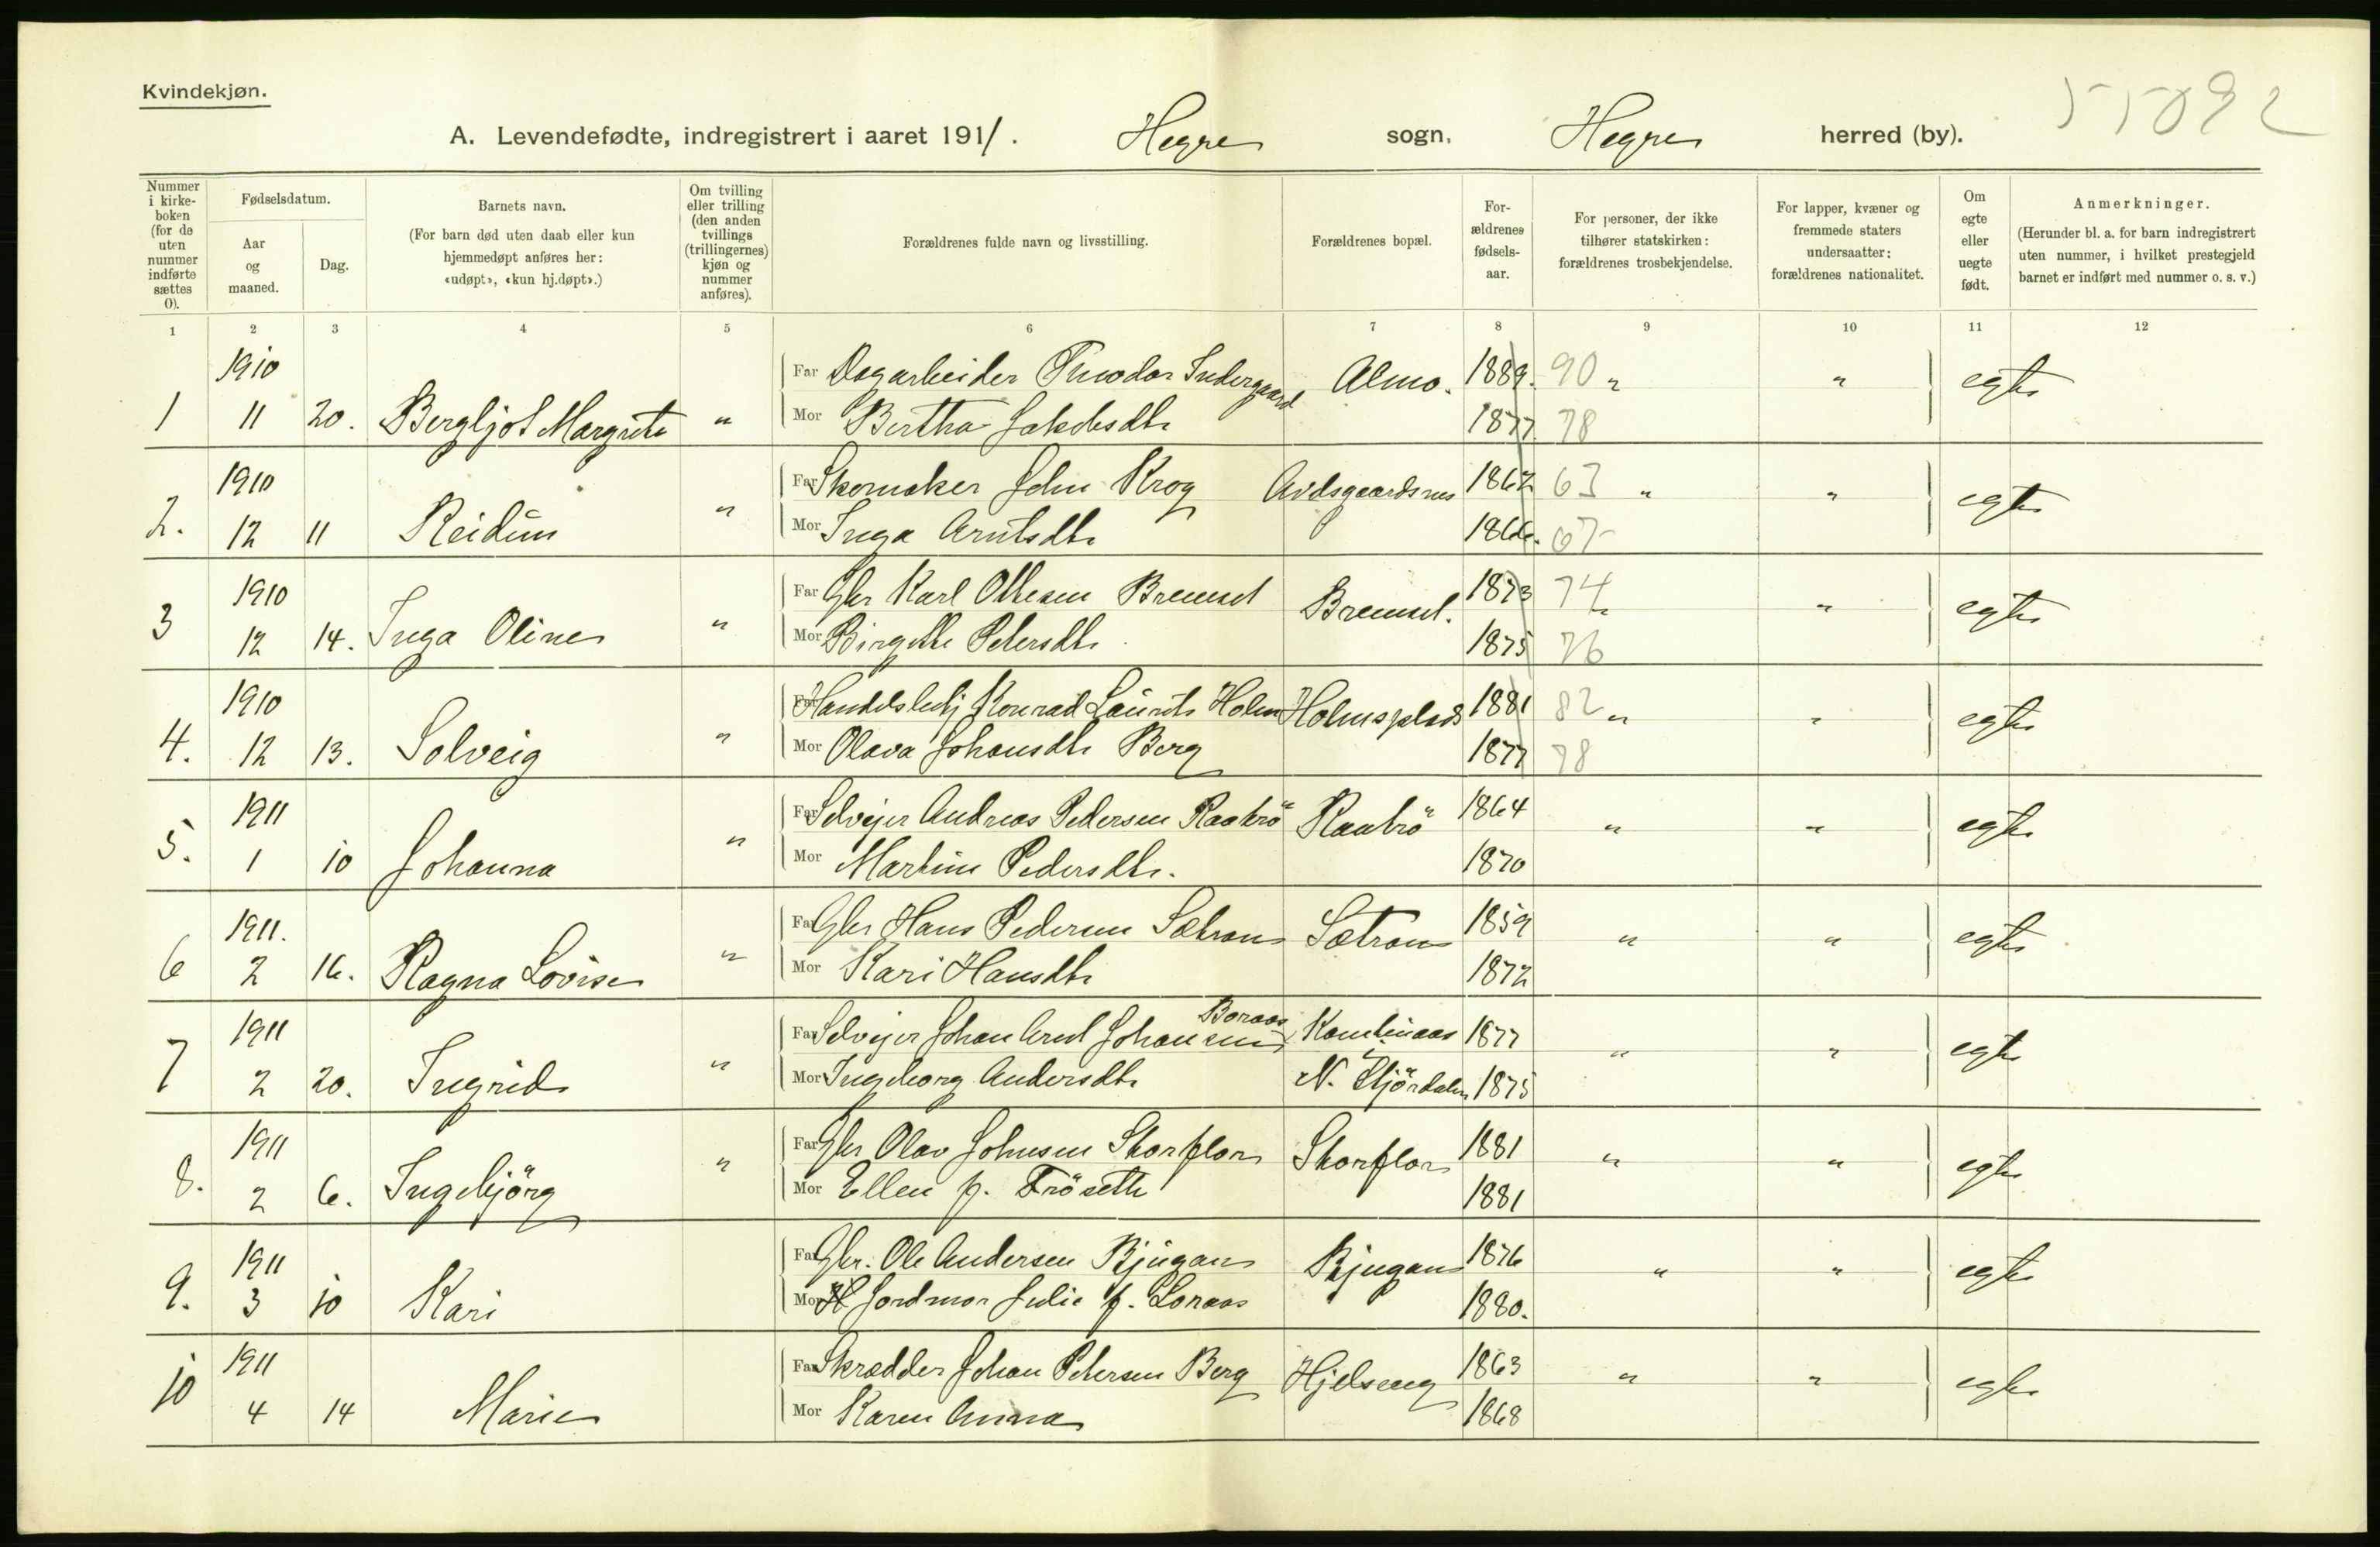 Kvindekjøn.
55092
A. Levendefødte, indregistrert i aaret 1911. Hegre sogn, Hegre herred (by).
Nummer i kirkeboken (for de uten nummer indførte sættes 0).
Fødselsdatum.
Aar og maaned.
Dag.
Barnets navn.
(For barn død uten daab eller kun hjemmedøpt anføres her: «udøpt», «kun hj.døpt».)
Om tvilling eller trilling (den anden tvillings (trillingernes) kjøn og nummer anføres).
Forældrenes fulde navn og livsstilling.
Forældrenes bopæl.
Forældrenes fødselsaar.
For personer, der ikke tilhører statskirken: forældrenes trosbekjendelse.
For lapper, kvæner og fremmede staters undersaatter: forældrenes nationalitet.
Om egte eller uegte født.
Anmerkninger.
(Herunder bl. a. for barn indregistrert uten nummer, i hvilket prestegjeld barnet er indført med nummer o. s. v.)
1 2 3 4 5 6 7 8 9 10 11 12
1910 Far Dagarbeider Theodor Indergaard Almo. 1889. 90 " " egte
1 11 20. Bergljot Margrete " Mor Bertha Jakobsdtr 1877. 78
1910 Far Skomaker John Krog Avdsgaardsnes 1862 63 " " egte
2. 12 11 Reidun " Mor Inga Arntsdtr 1866. 67
1910 Far Gbr Karl Ottesen Bremset Bremset. 1873 74 " " egte
3 12 14. Inga Oline " Mor Birgitte Petersdtr 1875 76
1910 Far Handelsbetj Konrad Laurits Holm Holmsplads 1881 82 " " egte
4. 12 13. Solveig " Mor Olava Johansdtr Berg 1877 78
1911 Far Selvejer Andreas Pedersen Raabrö Raabrö 1864 " " egte
5. 1 10 Johanna " Mor Martine Pedersdtr. 1870
1911. Far Gbr Hans Pedersen Sætran Sætran 1859 " " egte
6 2 16. Ragna Lovise " Mor Kari Hansdtr 1872
1911 Far Selvejer Johan Arnt Johansen Boraas Kambuaas 1877 " " egte
7 2 20. Ingrid " Mor Ingeborg Andersdtr N. Stjördalen 1875
1911 Far Gbr Olav Johnsen Storflor Storflor 1881 " " egte
8. 2 6. Ingebjörg " Mor Ellen f. Fröseth 1881
1911 Far Gbr. Ole Andersen Bjugan Bjugan 1876 " " egte
9. 3 10 Kari Mor Jordmor Julie f. Loraas 1880.
1911 Far Skrædder Johan Petersen Berg Hjelseng 1863 " " egte
10 4 14 Marie Mor Karen Anna 1868